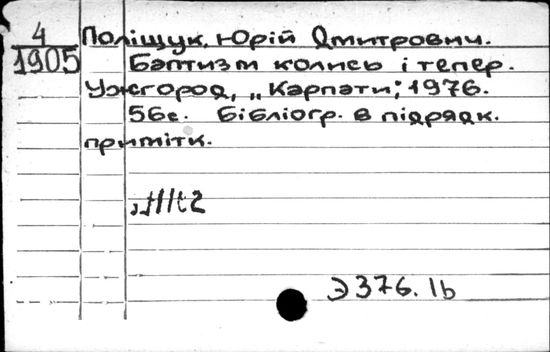 4
1905
Поліщук, Юрій Дмитрович.
Баптизм колись і тепер.
Ужгород, „Карпати”, 1976.
56с. Бібліогр. в підрядк.
примітк.
Э376.1ь